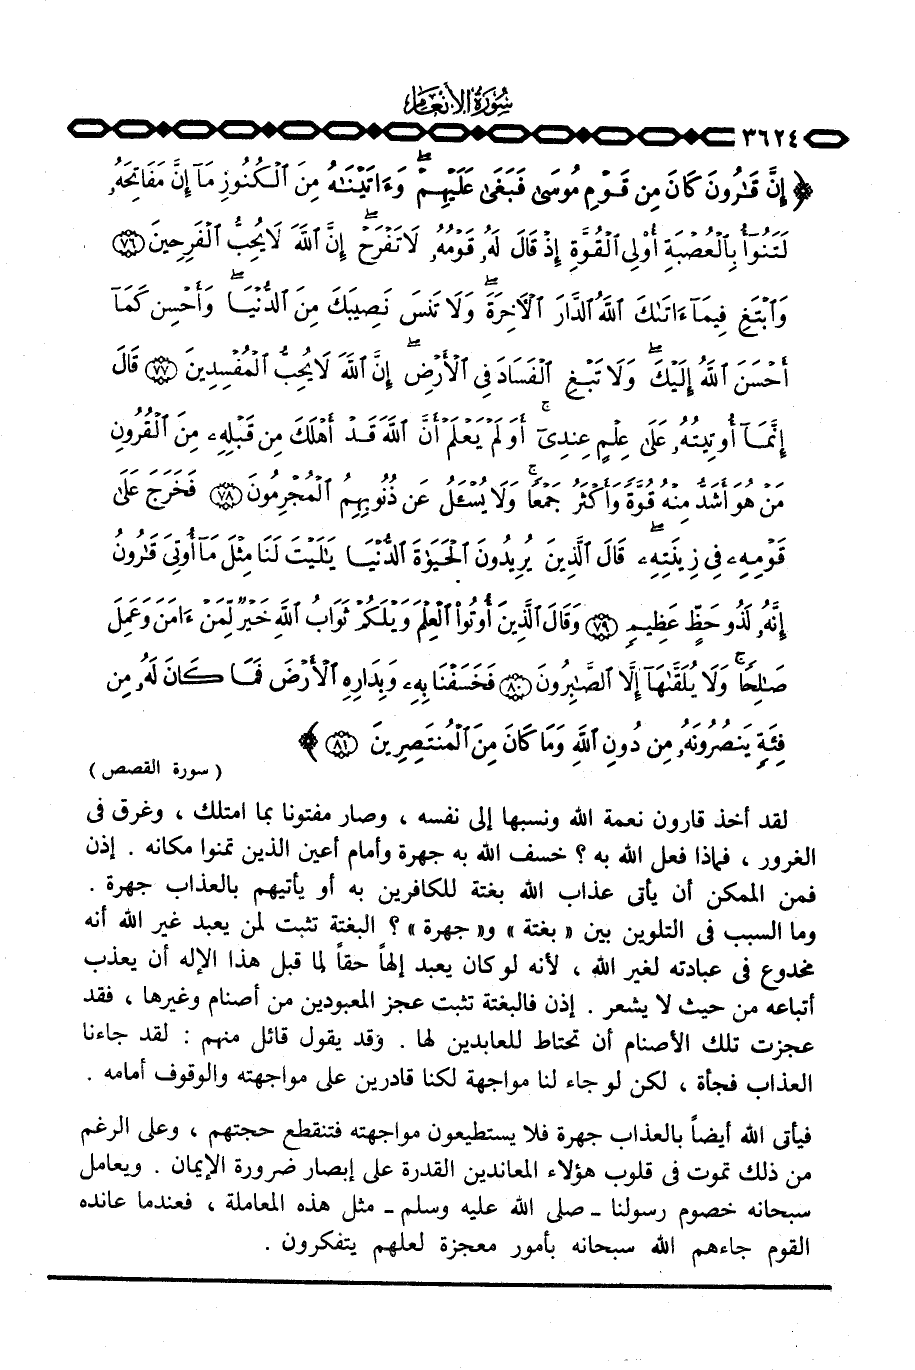 سُورَةُ الأَنْعَام
٣٦٢٤
﴿ إِنَّ قَٰرُونَ كَانَ مِن قَوْمِ مُوسَىٰ فَبَغَىٰ عَلَيْهِمْ ۖ وَءَاتَيْنَٰهُ مِنَ ٱلْكُنُوزِ مَآ إِنَّ مَفَاتِحَهُۥ
لَتَنُوٓأُ بِٱلْعُصْبَةِ أُو۟لِى ٱلْقُوَّةِ إِذْ قَالَ لَهُۥ قَوْمُهُۥ لَا تَفْرَحْ ۖ إِنَّ ٱللَّهَ لَا يُحِبُّ ٱلْفَرِحِينَ ٧٦
وَٱبْتَغِ فِيمَآ ءَاتَىٰكَ ٱللَّهُ ٱلدَّارَ ٱلْءَاخِرَةَ ۖ وَلَا تَنسَ نَصِيبَكَ مِنَ ٱلدُّنْيَا ۖ وَأَحْسِن كَمَآ
أَحْسَنَ ٱللَّهُ إِلَيْكَ ۖ وَلَا تَبْغِ ٱلْفَسَادَ فِى ٱلْأَرْضِ ۖ إِنَّ ٱللَّهَ لَا يُحِبُّ ٱلْمُفْسِدِينَ ٧٧ قَالَ
إِنَّمَآ أُوتِيتُهُۥ عَلَىٰ عِلْمٍ عِندِىٓ ۚ أَوَلَمْ يَعْلَمْ أَنَّ ٱللَّهَ قَدْ أَهْلَكَ مِن قَبْلِهِۦ مِنَ ٱلْقُرُونِ
مَنْ هُوَ أَشَدُّ مِنْهُ قُوَّةً وَأَكْثَرُ جَمْعًا ۚ وَلَا يُسْـَٔلُ عَن ذُنُوبِهِمُ ٱلْمُجْرِمُونَ ٧٨ فَخَرَجَ عَلَىٰ
قَوْمِهِۦ فِى زِينَتِهِۦ ۖ قَالَ ٱلَّذِينَ يُرِيدُونَ ٱلْحَيَوٰةَ ٱلدُّنْيَا يَٰلَيْتَ لَنَا مِثْلَ مَآ أُوتِىَ قَٰرُونُ
إِنَّهُۥ لَذُو حَظٍّ عَظِيمٍ ٧٩ وَقَالَ ٱلَّذِينَ أُوتُوا۟ ٱلْعِلْمَ وَيْلَكُمْ ثَوَابُ ٱللَّهِ خَيْرٌ لِّمَنْ ءَامَنَ وَعَمِلَ
صَٰلِحًا ۚ وَلَا يُلَقَّىٰهَآ إِلَّا ٱلصَّٰبِرُونَ ٨٠ فَخَسَفْنَا بِهِۦ وَبِدَارِهِ ٱلْأَرْضَ فَمَا كَانَ لَهُۥ مِن
فِئَةٍ يَنصُرُونَهُۥ مِن دُونِ ٱللَّهِ وَمَا كَانَ مِنَ ٱلْمُنتَصِرِينَ ٨١ ﴾
( سورة القصص )
لقد أخذ قارون نعمة الله ونسبها إلى نفسه ، وصار مفتونا بما امتلك ، وغرق فى
الغرور ، فماذا فعل الله به ؟ خسف الله به جهرة وأمام أعين الذين تمنوا مكانه . إذن
فمن الممكن أن يأتى عذاب الله بغتة للكافرين به أو يأتيهم بالعذاب جهرة .
وما السبب فى التلوين بين « بغتة » و« جهرة » ؟ البغتة تثبت لمن يعبد غير الله أنه
مخدوع فى عبادته لغير الله ، لأنه لو كان يعبد إلهاً حقاً لما قبل هذا الإله أن يعذب
أتباعه من حيث لا يشعر . إذن فالبغتة تثبت عجز المعبودين من أصنام وغيرها ، فقد
عجزت تلك الأصنام أن تحتاط للعابدين لها . وقد يقول قائل منهم : لقد جاءنا
العذاب فجأة ، لكن لو جاء لنا مواجهة لكنا قادرين على مواجهته والوقوف أمامه .
فيأتى الله أيضاً بالعذاب جهرة فلا يستطيعون مواجهته فتنقطع حجتهم ، وعلى الرغم
من ذلك تموت فى قلوب هؤلاء المعاندين القدرة على إبصار ضرورة الإيمان . ويعامل
سبحانه خصوم رسولنا ـ صلى الله عليه وسلم ـ مثل هذه المعاملة ، فعندما عانده
القوم جاءهم الله سبحانه بأمور معجزة لعلهم يتفكرون .